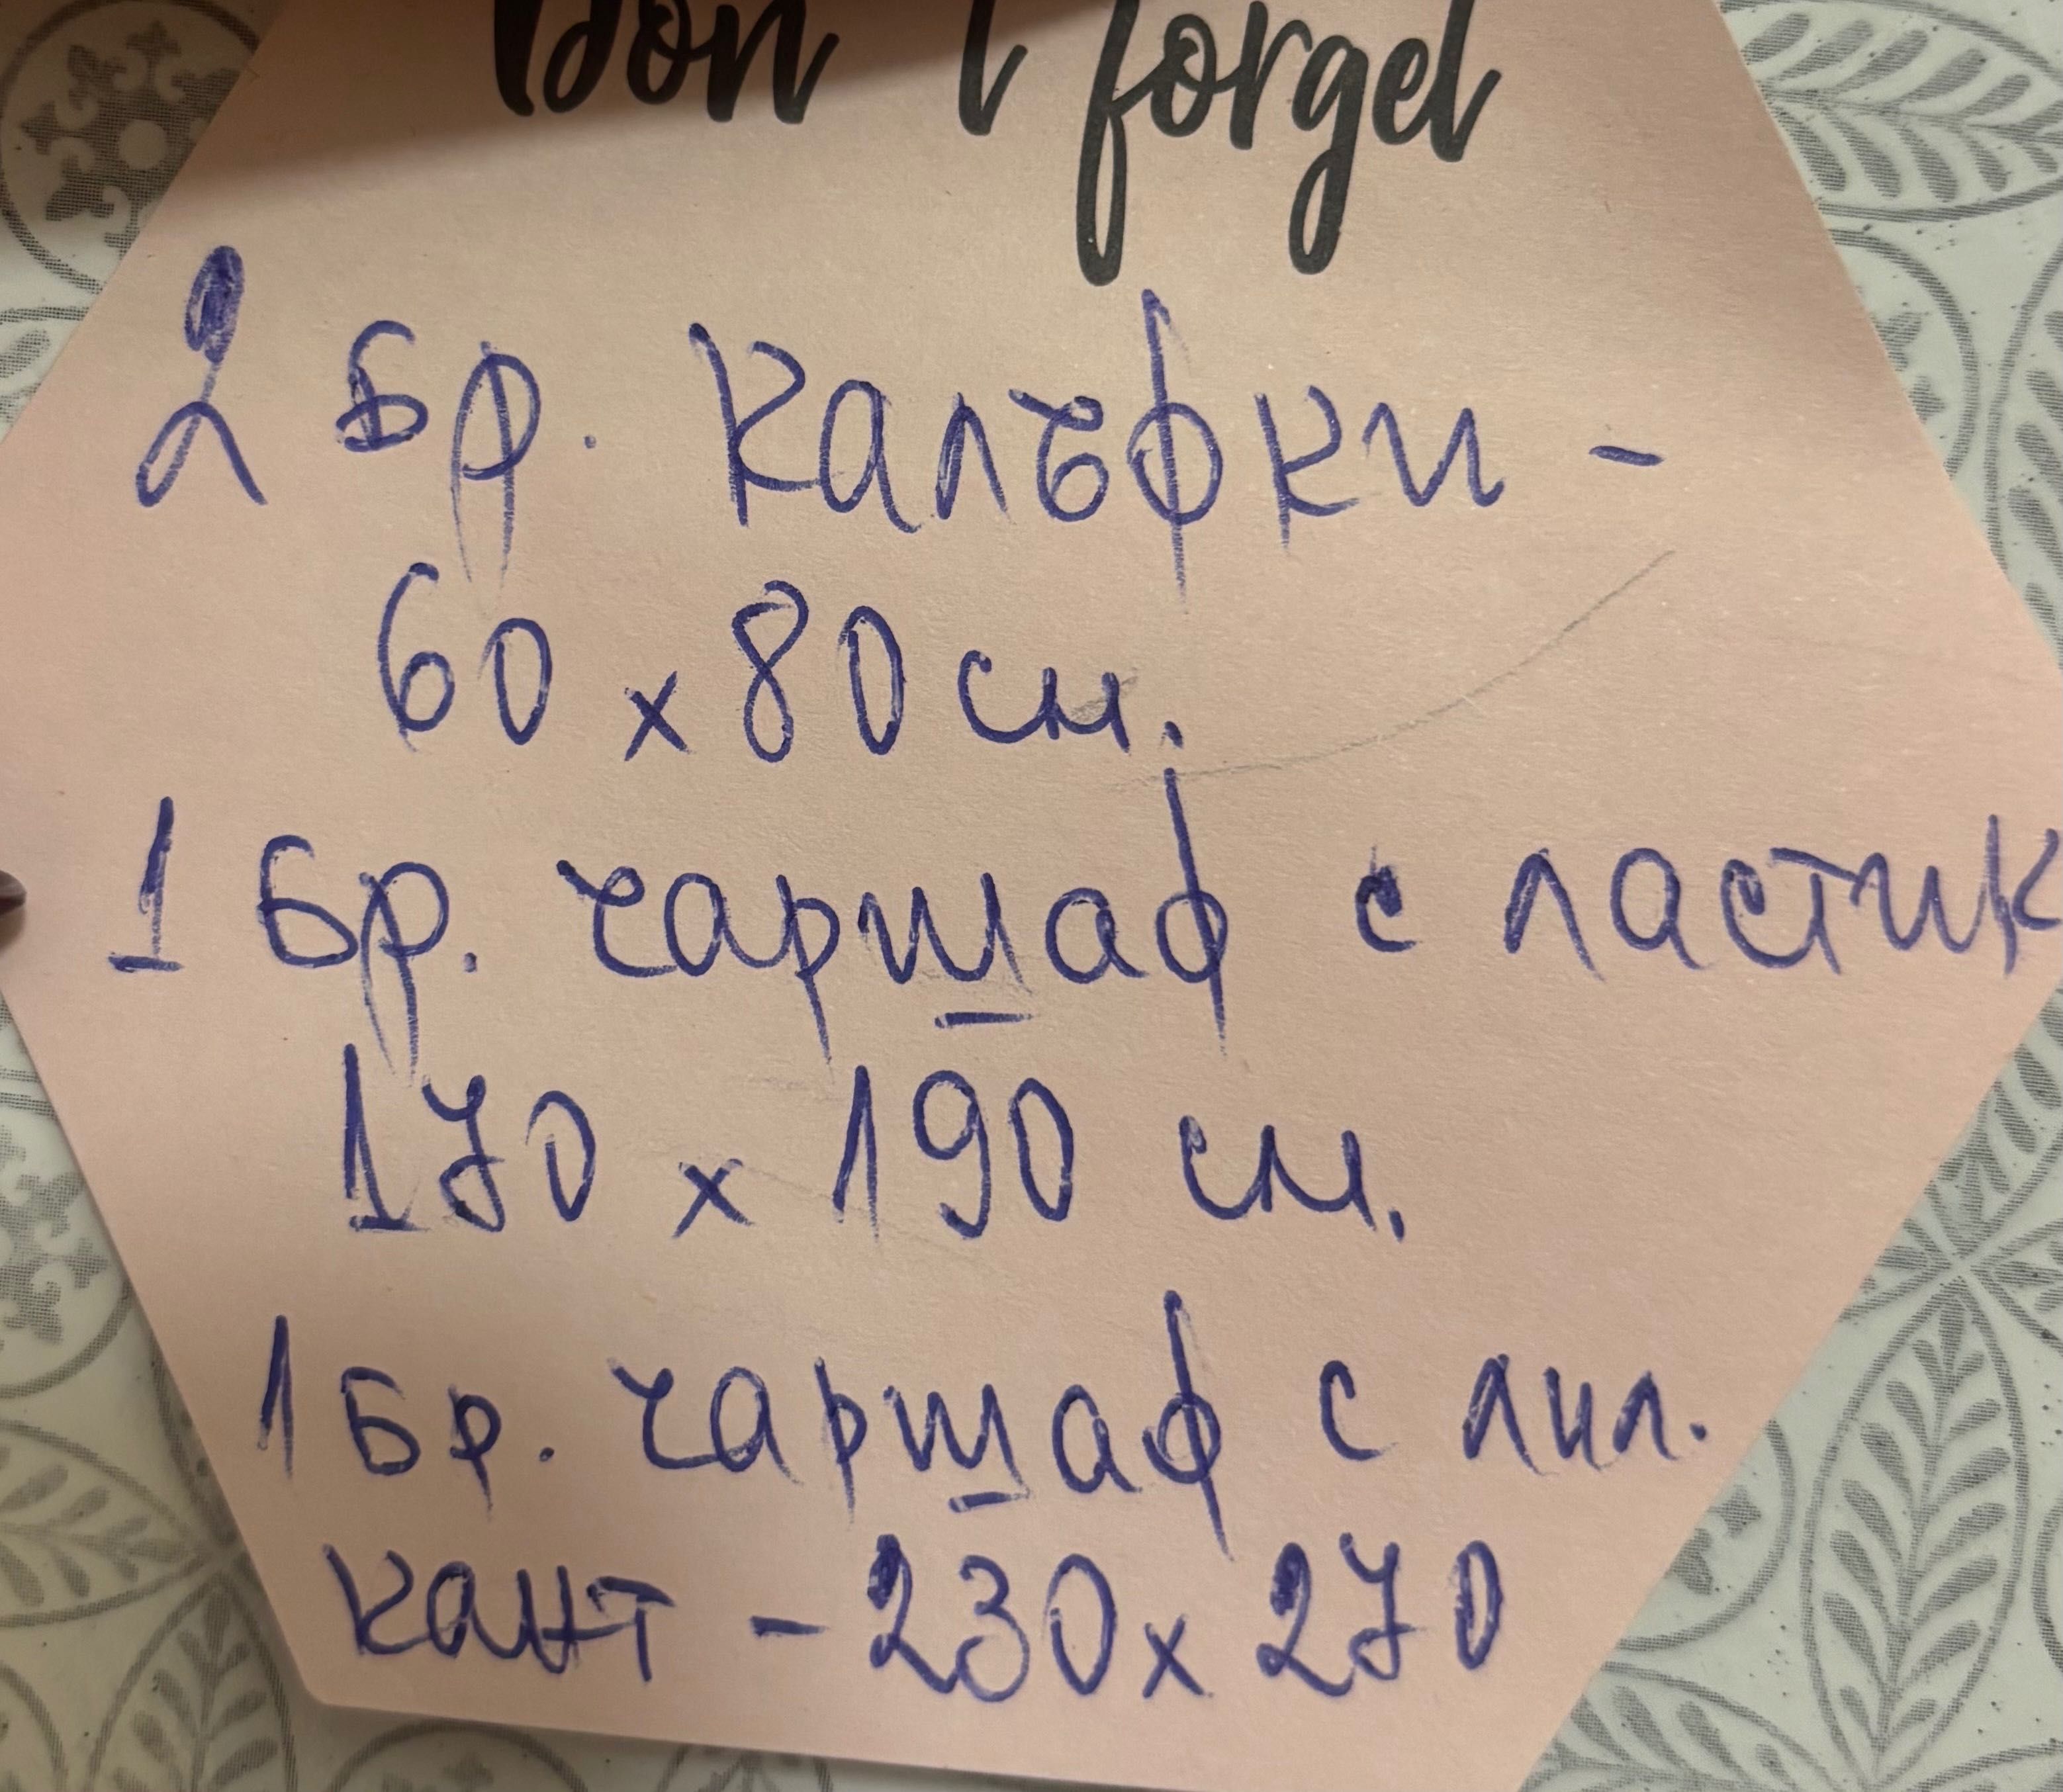 Don't forget
2 бр. калъфки -
60 x 80 см.
1 бр. чаршаф с ластик
170 x 190 см.
1 бр. чаршаф с лил.
кант - 230 x 270